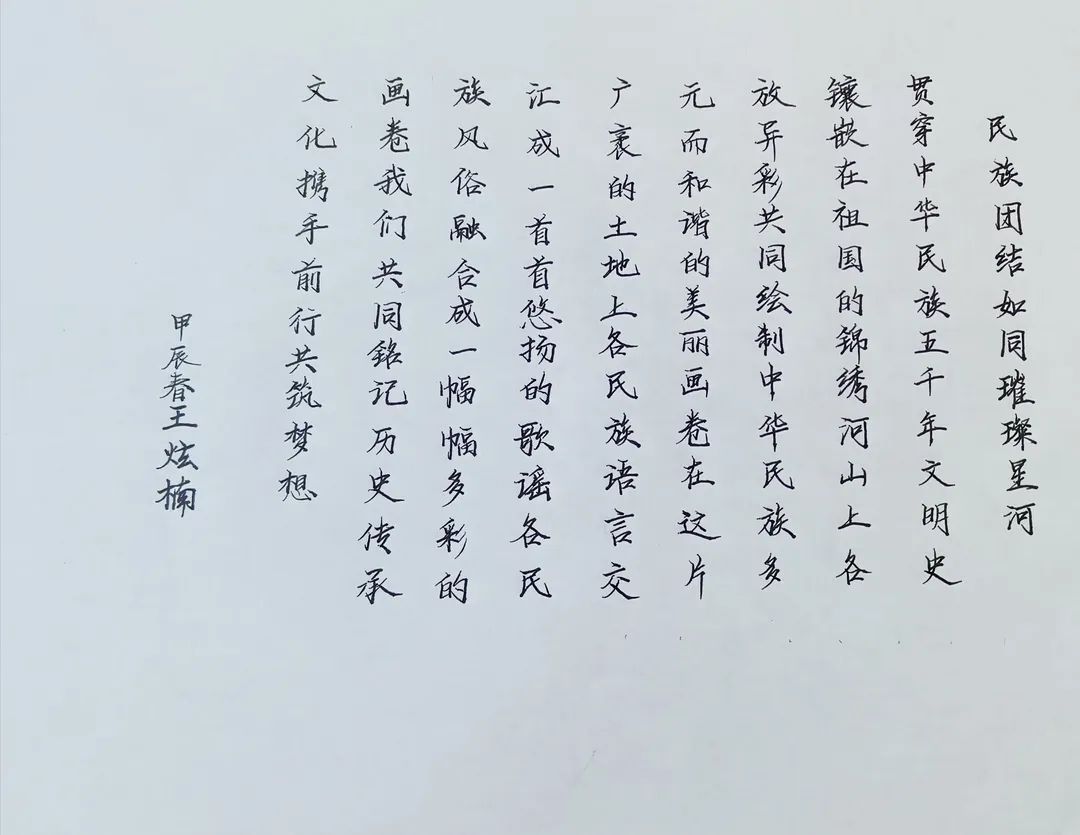 民族团结如同璀璨星河
贯穿中华民族五千年文明史
镶嵌在祖国的锦绣河山上各
放异彩共同绘制中华民族多
元而和谐的美丽画卷在这片
广袤的土地上各民族语言交
汇成一首首悠扬的歌谣各民
族风俗融合成一幅幅多彩的
画卷我们共同铭记历史传承
文化携手前行共筑梦想
甲辰春王炫楠